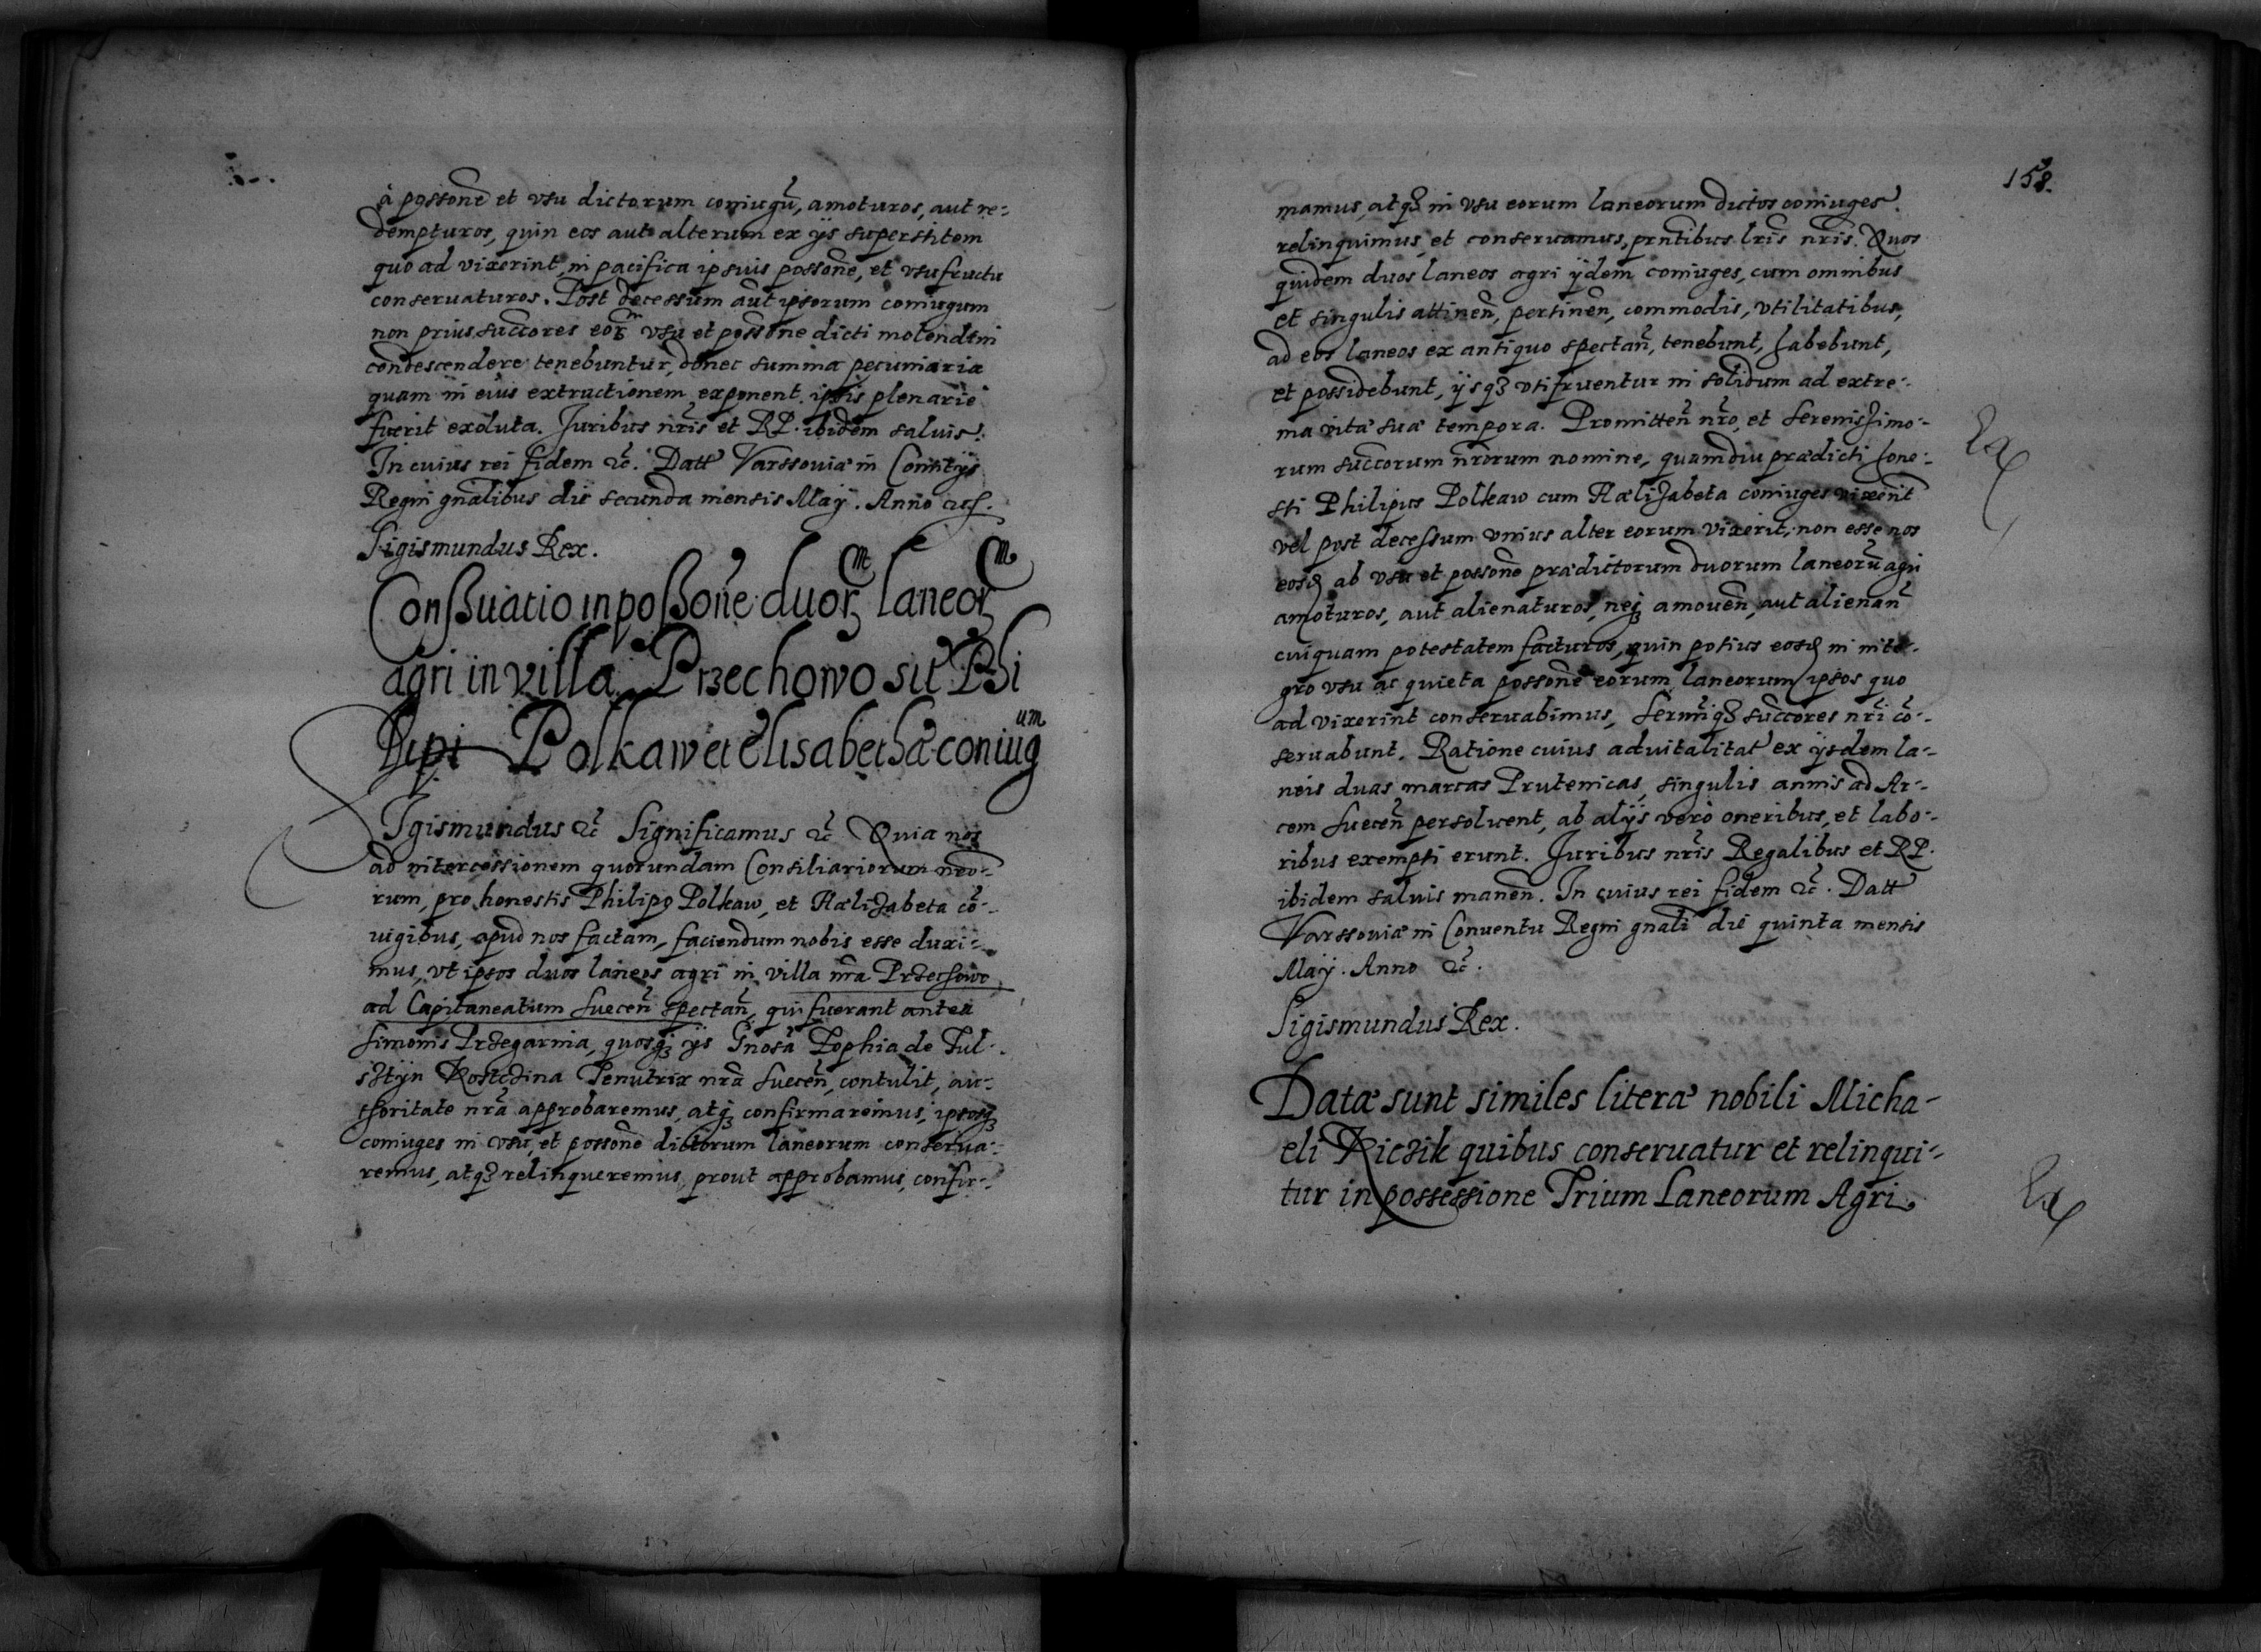 à possone et vsu dictorum coniugũ, amoturos, aut re-
dempturos, quin eos aut alterum ex ijs superstitem
quo ad vixerint, in pacifica ipsius possone, et vsufructu
conservaturos. Post decessum aũt ipsorum coniugum
non prius succores eorm vsu et possone dicti molendini
condescendere tenebuntur, donec summa pecuniaria
quam in eius extructionem exponent ipsis plenarie
fuerit exoluta. Juribus nris et RP. ibidem salvis.
In cuius rei fidem &c. Datt Varssoviæ in Comitijs
Regni gnalibus die secunda mensis Maij. Anno
Sigismundus Rex.
Conßuatio in poßone duorm laneorm
agri in villa Przechowo sit Phi
lipi Polkaw et Elisabethæ coniug um
Sigismundus &c Significamus &c Quia nos
ad intercessionem quorundam Consiliariorum nro-
rum, pro honestis Philipo Polkaw, et Hælizabeta cõ-
iugibus, apud nos factam, faciendum nobis esse duxi-
mus, vt ipsos duos laneos agri in villa nra Przechowo
ad Capitaneatum Suecen spectan, qui fuerant antea
Simonis Przegarnia, quosq; ijs Gnosa Zophia de Ful-
sztyn Kostczina Tenutrix nra Suecen, contulit, au-
thoritate nra approbaremus, atq; confirmaremus, ipsosq;
coniuges in vsu, et possone dictorum laneorum conserva-
remus, atq; relinqueremus, prout approbamus, confir-
158.
mamus, atq; in vsu eorum laneorum dictos coniuges
relinquimus, et conservamus, prntibus lris nris. Quos
quidem duos laneos agri ijdem coniuges, cum omnibus
et singulis attinen, pertinen, commodis, vtilitatibus,
ad eos laneos ex antiquo spectan, tenebunt, habebunt,
et possidebunt, ijsq; vtifruentur in solidum ad extre-
ma vitæ suæ tempora. Promitten nro, et Serenissimo-
rum succorum nrorum nomine, quamdiu prædicti hone-
sti Philipus Polkaw cum Hælizabeta coniuges vixerint
vel post decessum vnius alter eorum vixerit, non esse nos
eosd ab vsu et possone prædictorum duorum laneorũ agri
amoturos, aut alienaturos, neq; amoven, aut alienan
cuiquam potestatem facturos, quin potius eosd in inte-
gro vsu ac quieta possone eorum laneorum ipsos quo
ad vixerint conservabimus, Sermiq; succores nri cõ-
servabunt. Ratione cuius advitalitat ex ijsdem la-
neis duas marcas Prutenicas, singulis annis ad Ar-
cem Suecen persolvent, ab alijs vero oneribus, et labo-
ribus exempti erunt. Juribus nris Regalibus et RP.
ibidem salvis manen. In cuius rei fidem &c. Datt
Varssoviæ in Conventu Regni gnali die quinta mensis
Maij. Anno &c.
Sigismundus Rex.
Datæ sunt similes literæ nobili Micha-
eli Kiczik quibus conservatur et relinqui-
tur in possessione Trium Laneorum Agri